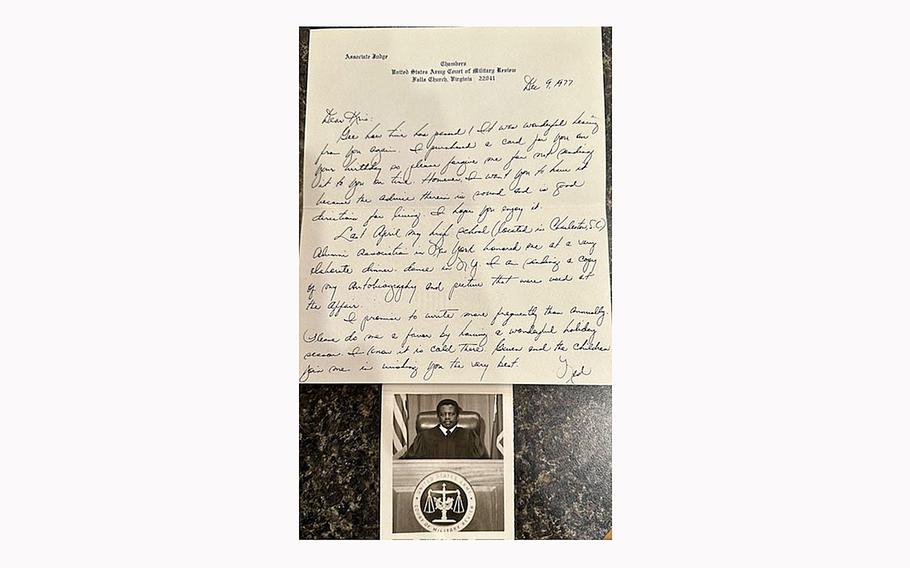 Associate Judge
Chambers
United States Army Court of Military Review
Falls Church, Virginia 22041
Dec 9, 1977
Dear Kris:
Gee how time has passed! It was wonderful hearing
from you again. I purchased a card for you on
your birthday so please forgive me for not sending
it to you on time. However, I want you to have it
because the advice therein is sound and is good
direction for living. I hope you enjoy it.
Last April my high school (located in Charleston, S.C.)
Alumni Association in New York honored me at a very
elaborate dinner-dance in N.Y. I am sending a copy
of my Autobiography and picture that were used at
the affair.
I promise to write more frequently than annually.
Please do me a favor by having a wonderful holiday
season. I know it is cold there. and the children
join me in wishing you the very best.
UNITED STATES ARMY
COURT OF MILITARY REVIEW